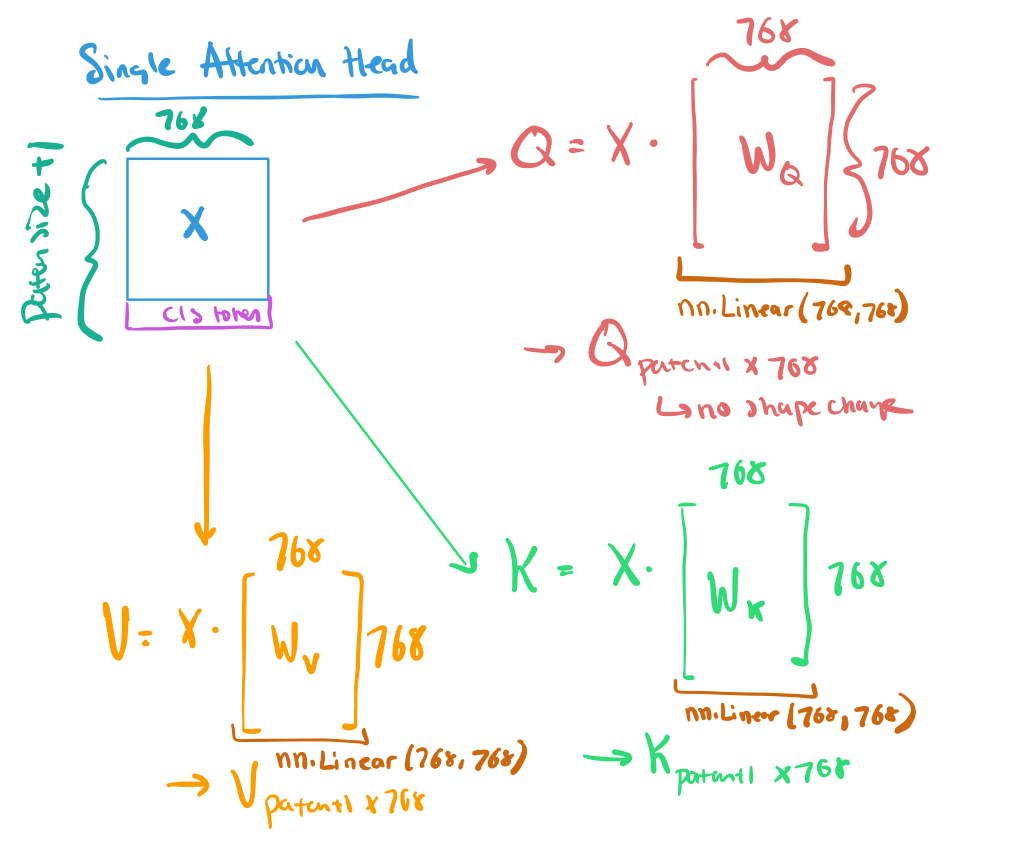 Single Attention Head
768
patch size + 1
X
Cls token
768
Q = X · W_Q
768
nn.Linear(768,768)
→ Q patch+1 x 768
↳ no shape change
768
K = X · W_K
768
nn.Linear(768, 768)
→ K patch+1 x 768
768
V = X · W_V
768
nn.Linear(768, 768)
→ V patch+1 x 768